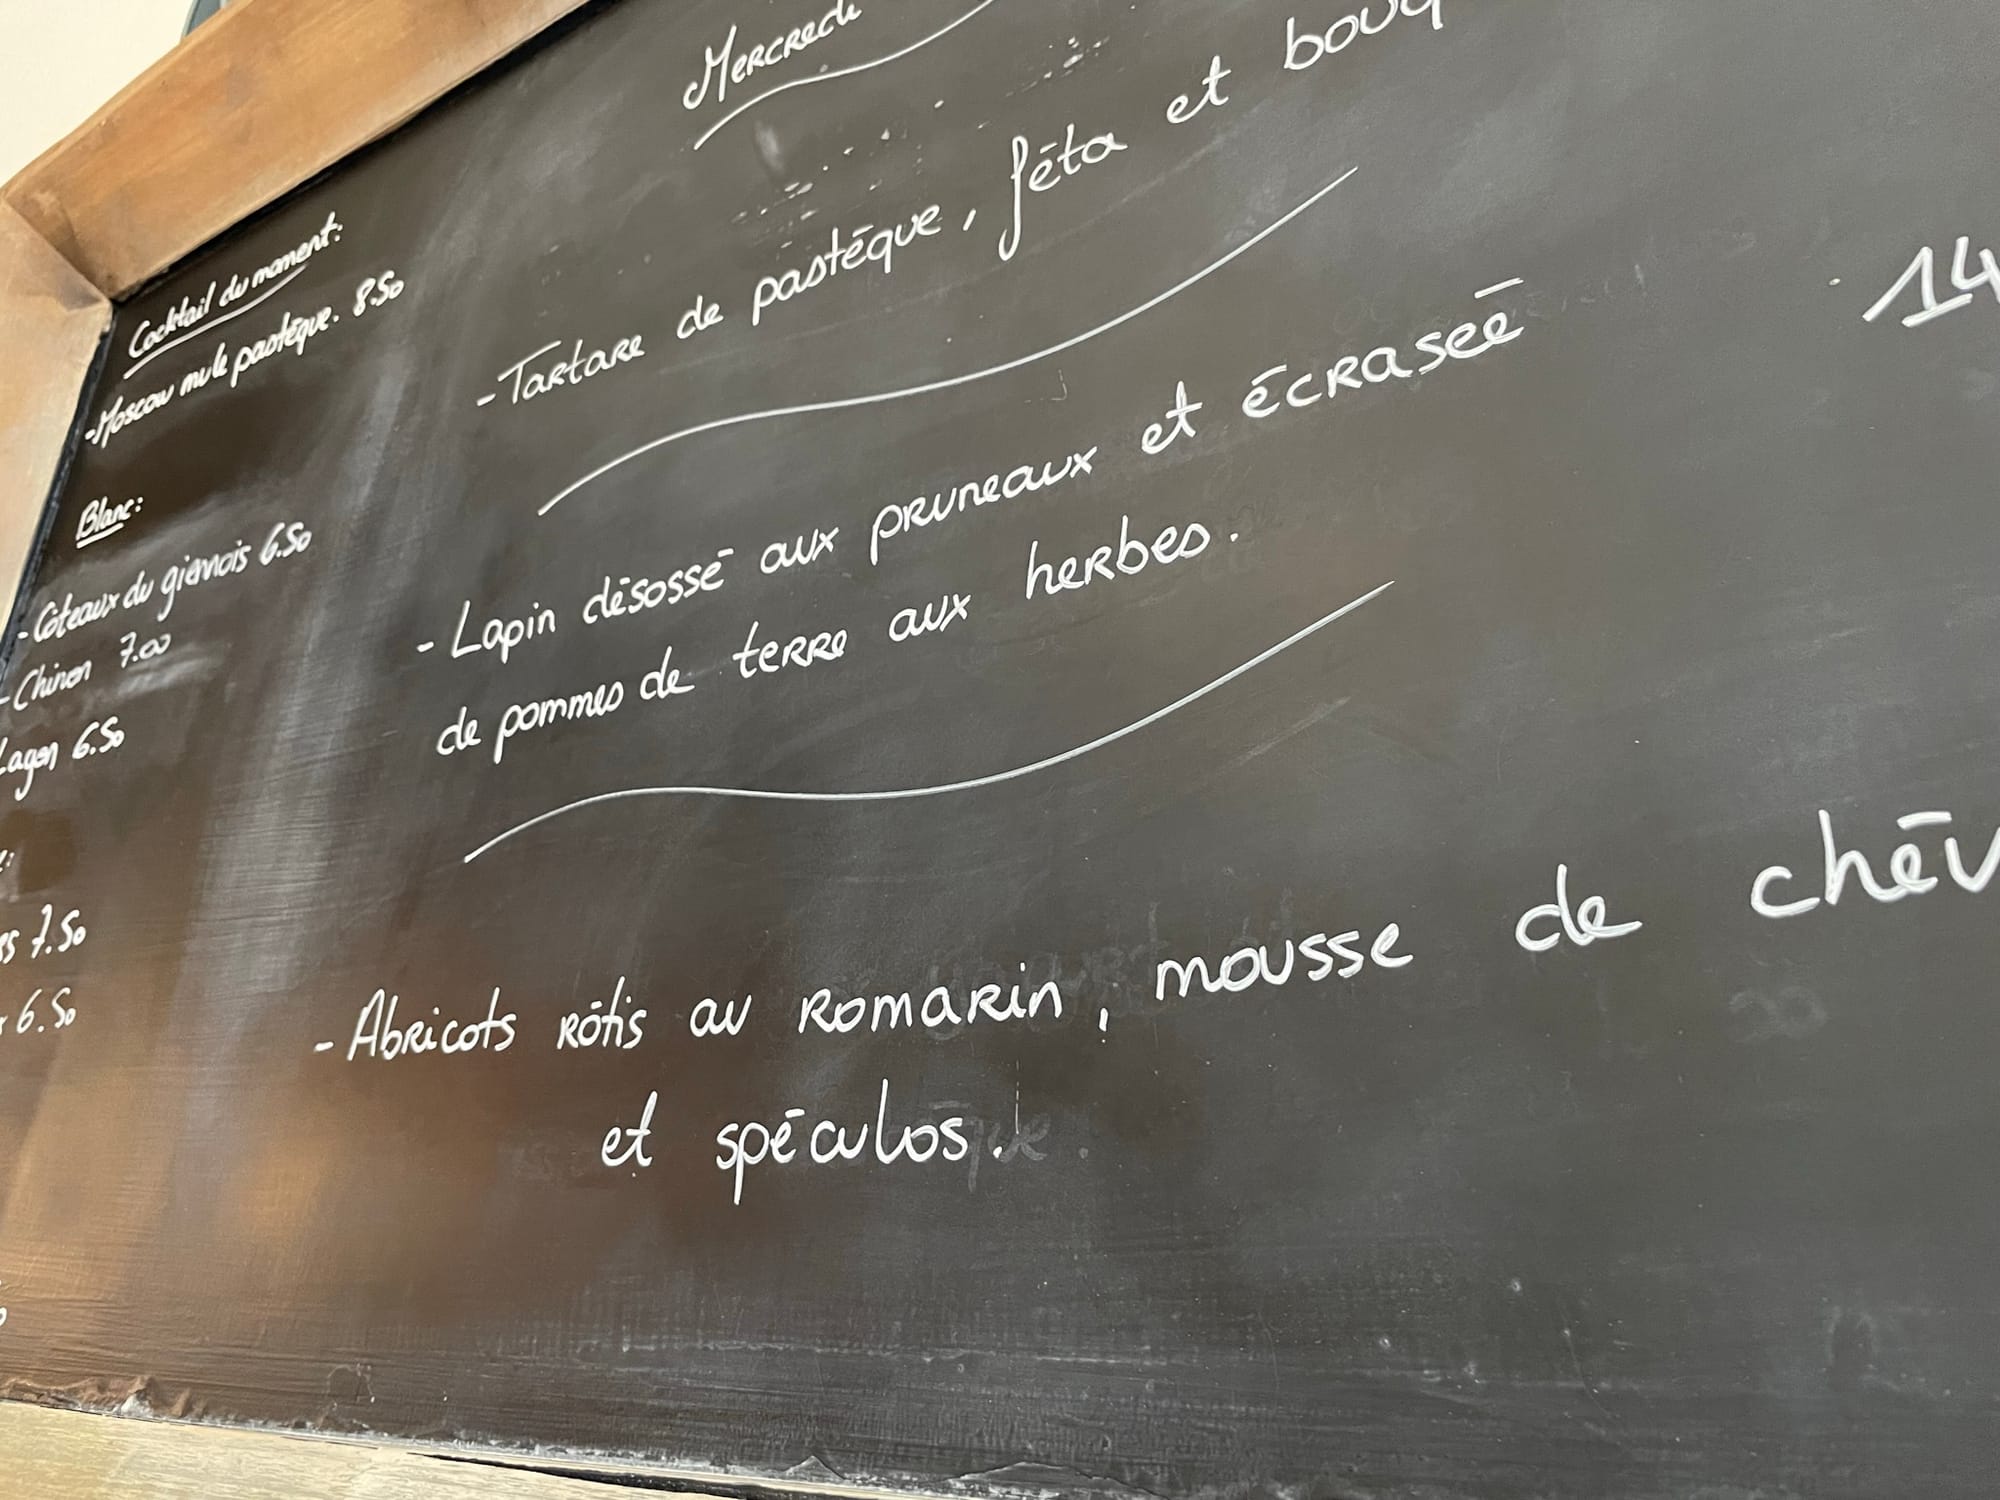 Mercredi
- Tartare de pastèque, féta et
- Lapin désossé aux pruneaux et écrasée
de pommes de terre aux herbes.
14
- Abricots rôtis au romarin, mousse de
et spéculos.
Cocktail du moment:
- Moscow mule pastèque. 8.50
Blanc:
- Côteaux du giennois 6.50
- Chinon 7.00
6.50
7.50
6.50